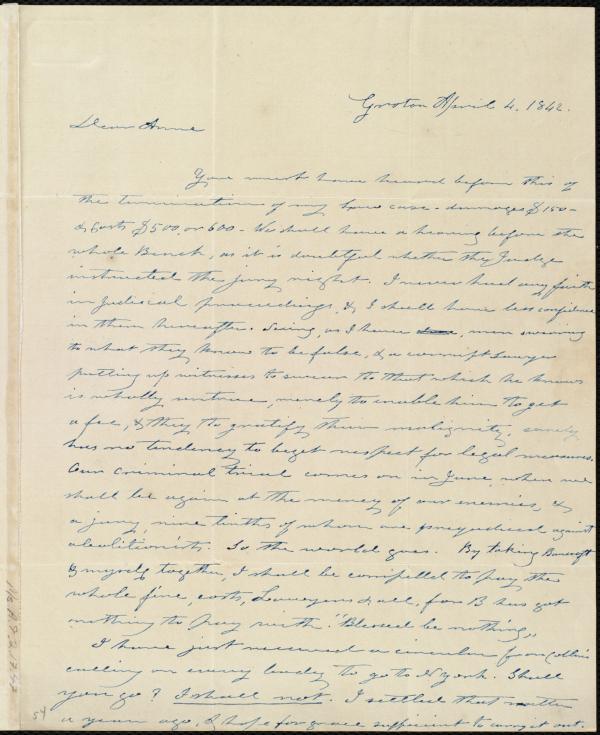 Groton April 4. 1842.
Dear Anne
You must have heard before this of
the termination of my law case - damages $150 -
& Costs $500. or 600 - We shall have a hearing before the
whole Bench, as it is doubtful whether the Judge
instructed the jury right. I never had any faith
in Judicial proceedings, & I shall have less confidence
in them hereafter. Seeing, as I have, men swearing
to what they know to be false, & a corrupt Lawyer
putting up witnesses to swear to that which he knows
is wholly untrue, merely to enable him to get
a fee, & they to gratify their malignity, surely
has no tendency to beget respect for legal measures.
Our criminal trial comes on in June, when we
shall be again at the mercy of our enemies, &
a jury, nine tenths of whom are prejudiced against
abolitionists. So the world goes. By taking Bancroft
& myself together, I shall be compelled to pay the
whole fine, costs, Lawyers & all, for B has got
nothing to pay with. "Blessed be nothing"
I have just received a circular from Collins
calling on every body to go to N York. Shall
you go? I shall not. I settled that matter
a year ago, & hope for grace sufficient to carry it out.
54